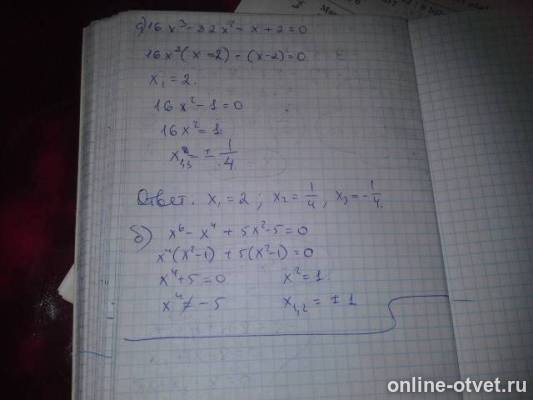 а) 16x³ - 32x² - x + 2 = 0
16x²(x - 2) - (x - 2) = 0
x₁ = 2.
16x² - 1 = 0
16x² = 1
x₂,₃ = ± 1/4.
Ответ. x₁ = 2; x₂ = 1/4, x₃ = -1/4.
б) x⁶ - x⁴ + 5x² - 5 = 0
x⁴(x² - 1) + 5(x² - 1) = 0
x⁴ + 5 = 0 x² = 1.
x⁴ ≠ - 5 x₁,₂ = ± 1
online-otvet.ru